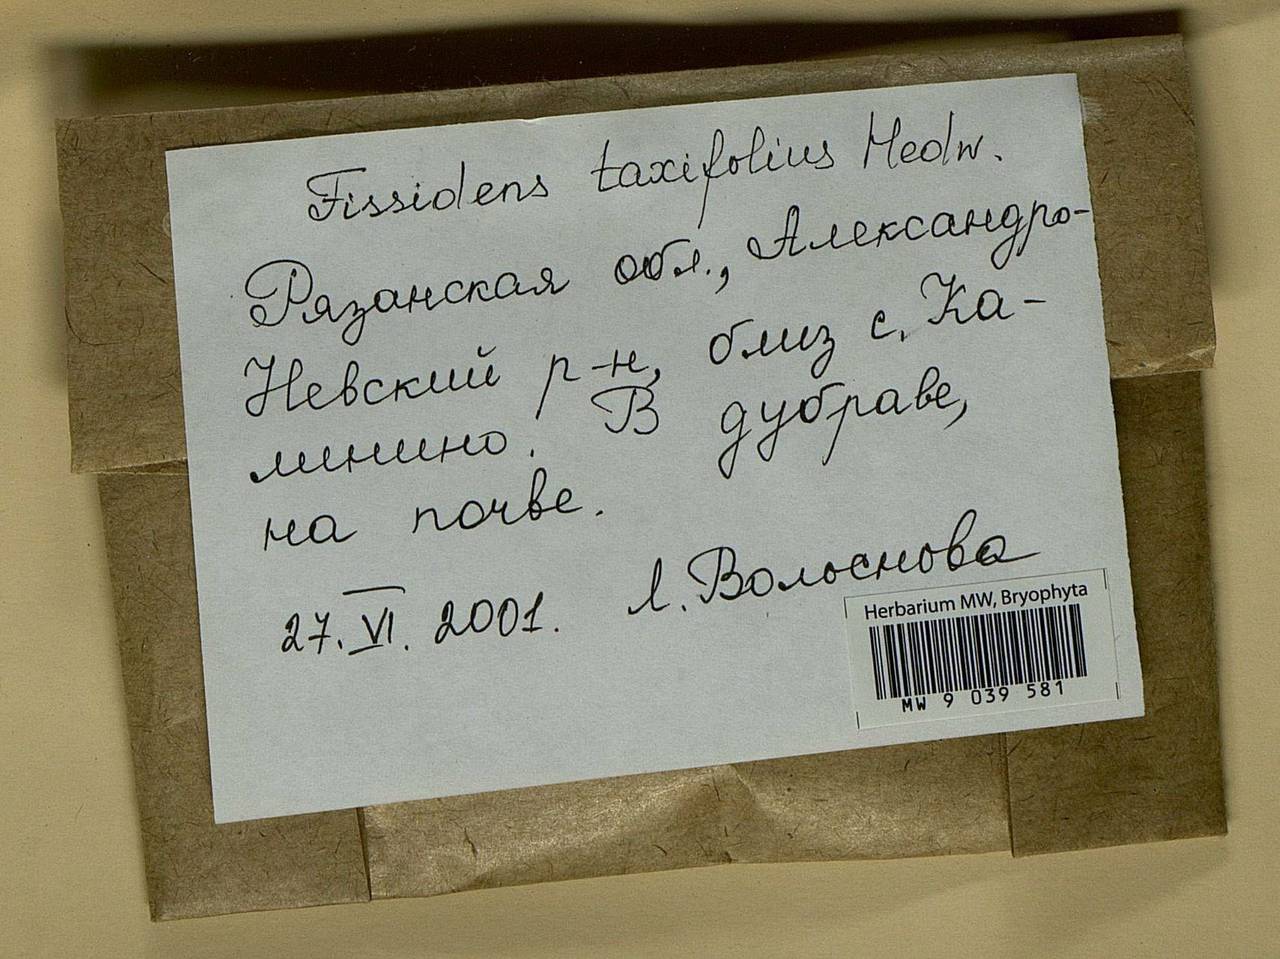 Fissidens taxifolius Hedw.
Рязанская обл., Александро-
Невский р-н, близ с. Ка-
минино. В дубраве,
на почве.
27.VI.2001. Л. Волоснова
Herbarium MW, Bryophyta
MW 9 039 581